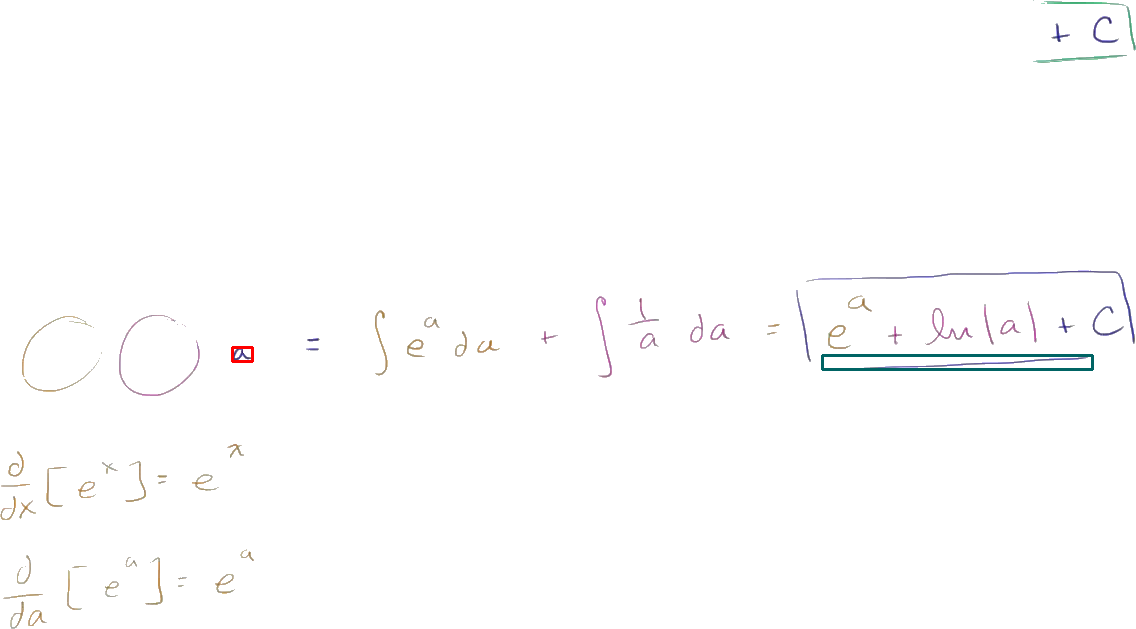 + C
a = ∫ e^a da + ∫ 1/a da = e^a + ln|a| + C
d/dx [e^x] = e^x
d/da [e^a] = e^a